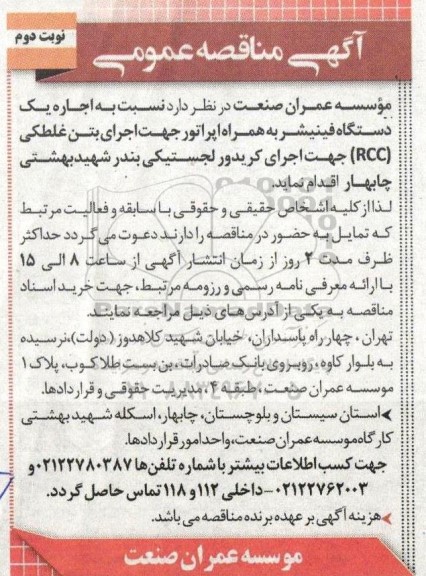 نوبت دوم
آگهی مناقصه عمومی
مؤسسه عمران صنعت در نظر دارد نسبت به اجاره یک
دستگاه فینیشر به همراه اپراتور جهت اجرای بتن غلطکی
(RCC) جهت اجرای کریدور لجستیکی بندر شهید بهشتی
چابهار اقدام نماید.
لذا از کلیه اشخاص حقیقی و حقوقی با سابقه و فعالیت مرتبط
که تمایل به حضور در مناقصه را دارند دعوت می گردد حداکثر
ظرف مدت ۲ روز از زمان انتشار آگهی از ساعت ۸ الی ۱۵
با ارائه معرفی نامه رسمی و رزومه مرتبط، جهت خرید اسناد
مناقصه به یکی از آدرس های ذیل مراجعه نمایند.
تهران، چهارراه پاسداران، خیابان شهید کلاهدوز (دولت)، نرسیده
به بلوار کاوه، روبروی بانک صادرات، بن بست طلاکوب، پلاک ۱
موسسه عمران صنعت، طبقه ۴، مدیریت حقوقی و قراردادها.
استان سیستان و بلوچستان، چابهار، اسکله شهید بهشتی
کارگاه موسسه عمران صنعت، واحد امور قراردادها.
جهت کسب اطلاعات بیشتر با شماره تلفن ها ۰۲۱۲۲۷۸۰۳۸۷ و
۰۲۱۲۲۷۶۲۰۰۳ - داخلی ۱۱۲ و ۱۱۸ تماس حاصل گردد.
هزینه آگهی بر عهده برنده مناقصه می باشد.
موسسه عمران صنعت